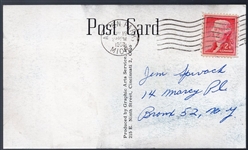 Post Card
ANN A
MICH
2¢
Produced by Graphic Arts Service
315 E. Ninth Street, Cincinnati 2, Ohio
Jem
14 Marcy Pl
Bronx 52, N.Y